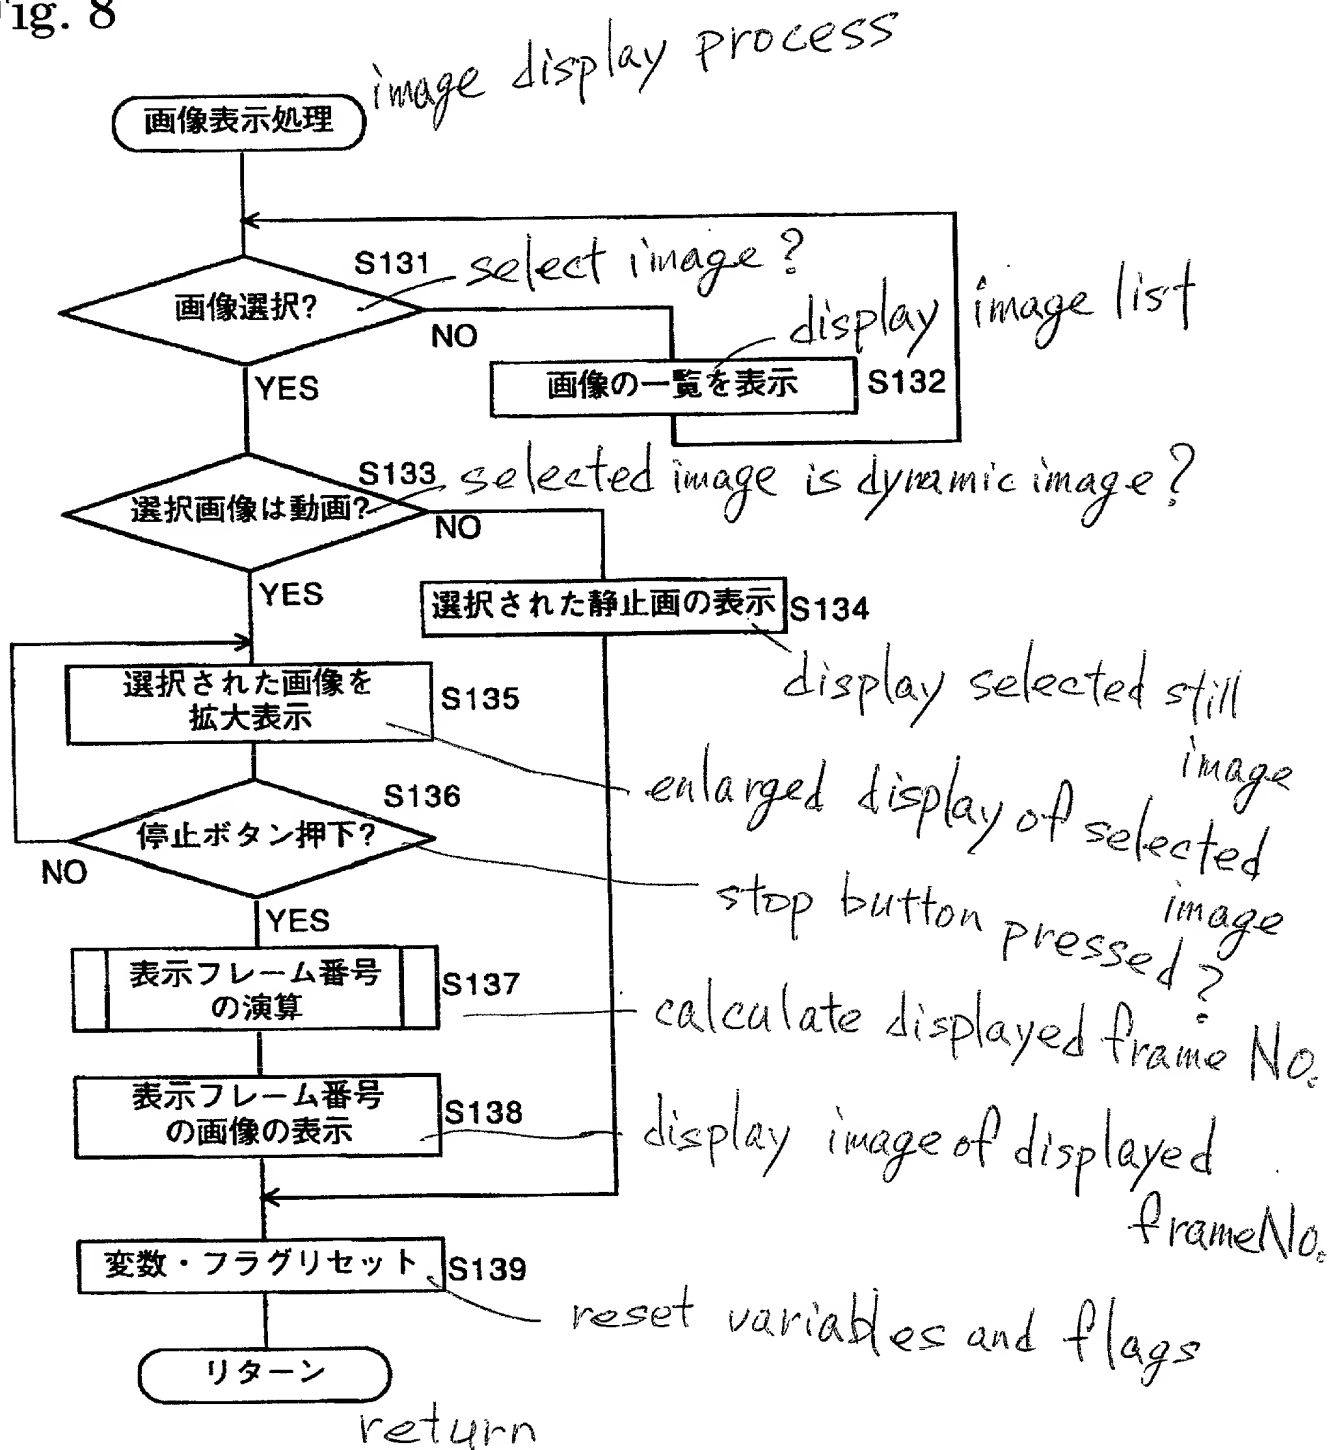 Fig. 8
image display process
画像表示処理
S131
select image?
画像選択?
NO
display image list
画像の一覧を表示
S132
YES
S133
selected image is dynamic image?
選択画像は動画?
NO
YES
選択された静止画の表示
S134
display selected still
image
選択された画像を
拡大表示
S135
enlarged display of selected
image
S136
停止ボタン押下?
NO
stop button pressed?
YES
表示フレーム番号
の演算
S137
calculate displayed frame No.
表示フレーム番号
の画像の表示
S138
display image of displayed
frame No.
変数・フラグリセット
S139
reset variables and flags
リターン
return